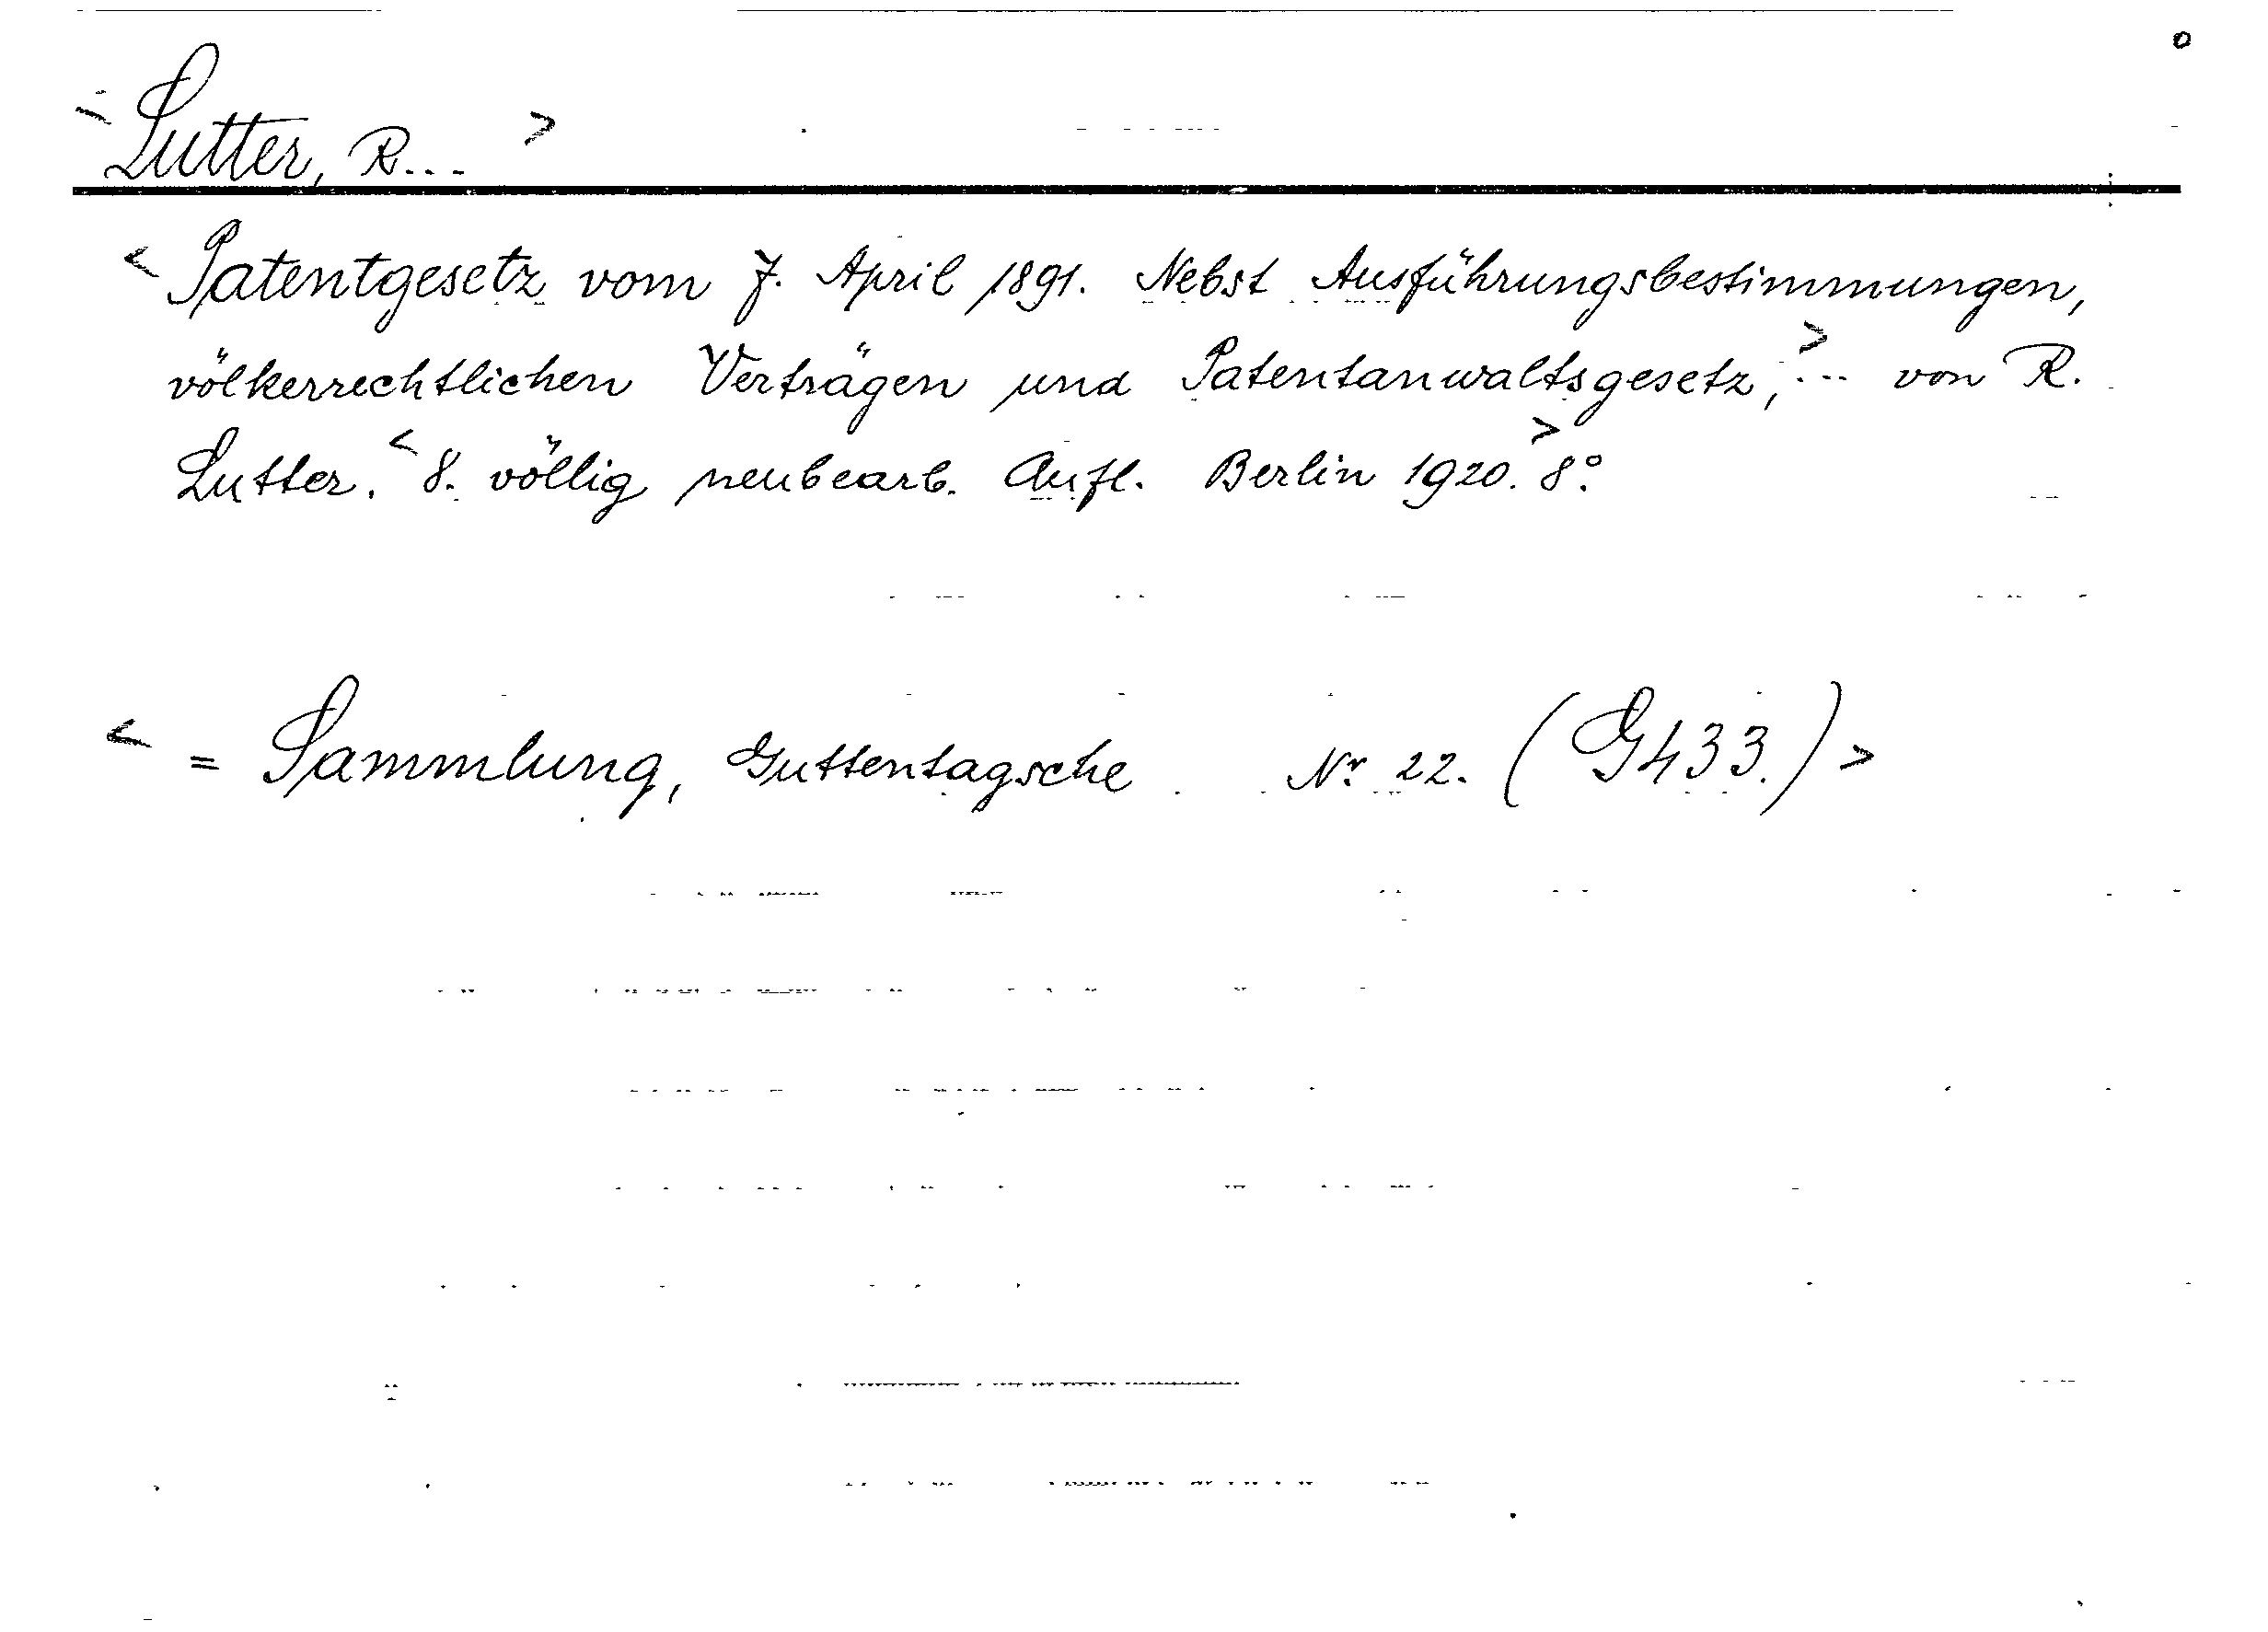 <Lutter, R... >
<Patentgesetz vom 7. April 1891. Nebst Ausführungsbestimmungen,
völkerrechtlichen Verträgen und Patentanwaltsgesetz,> ... von R.
Lutter. <8. völlig neubearb. Aufl. Berlin 1920.> 8°
< = Sammlung, Guttentagsche Nr. 22. (G433.)>